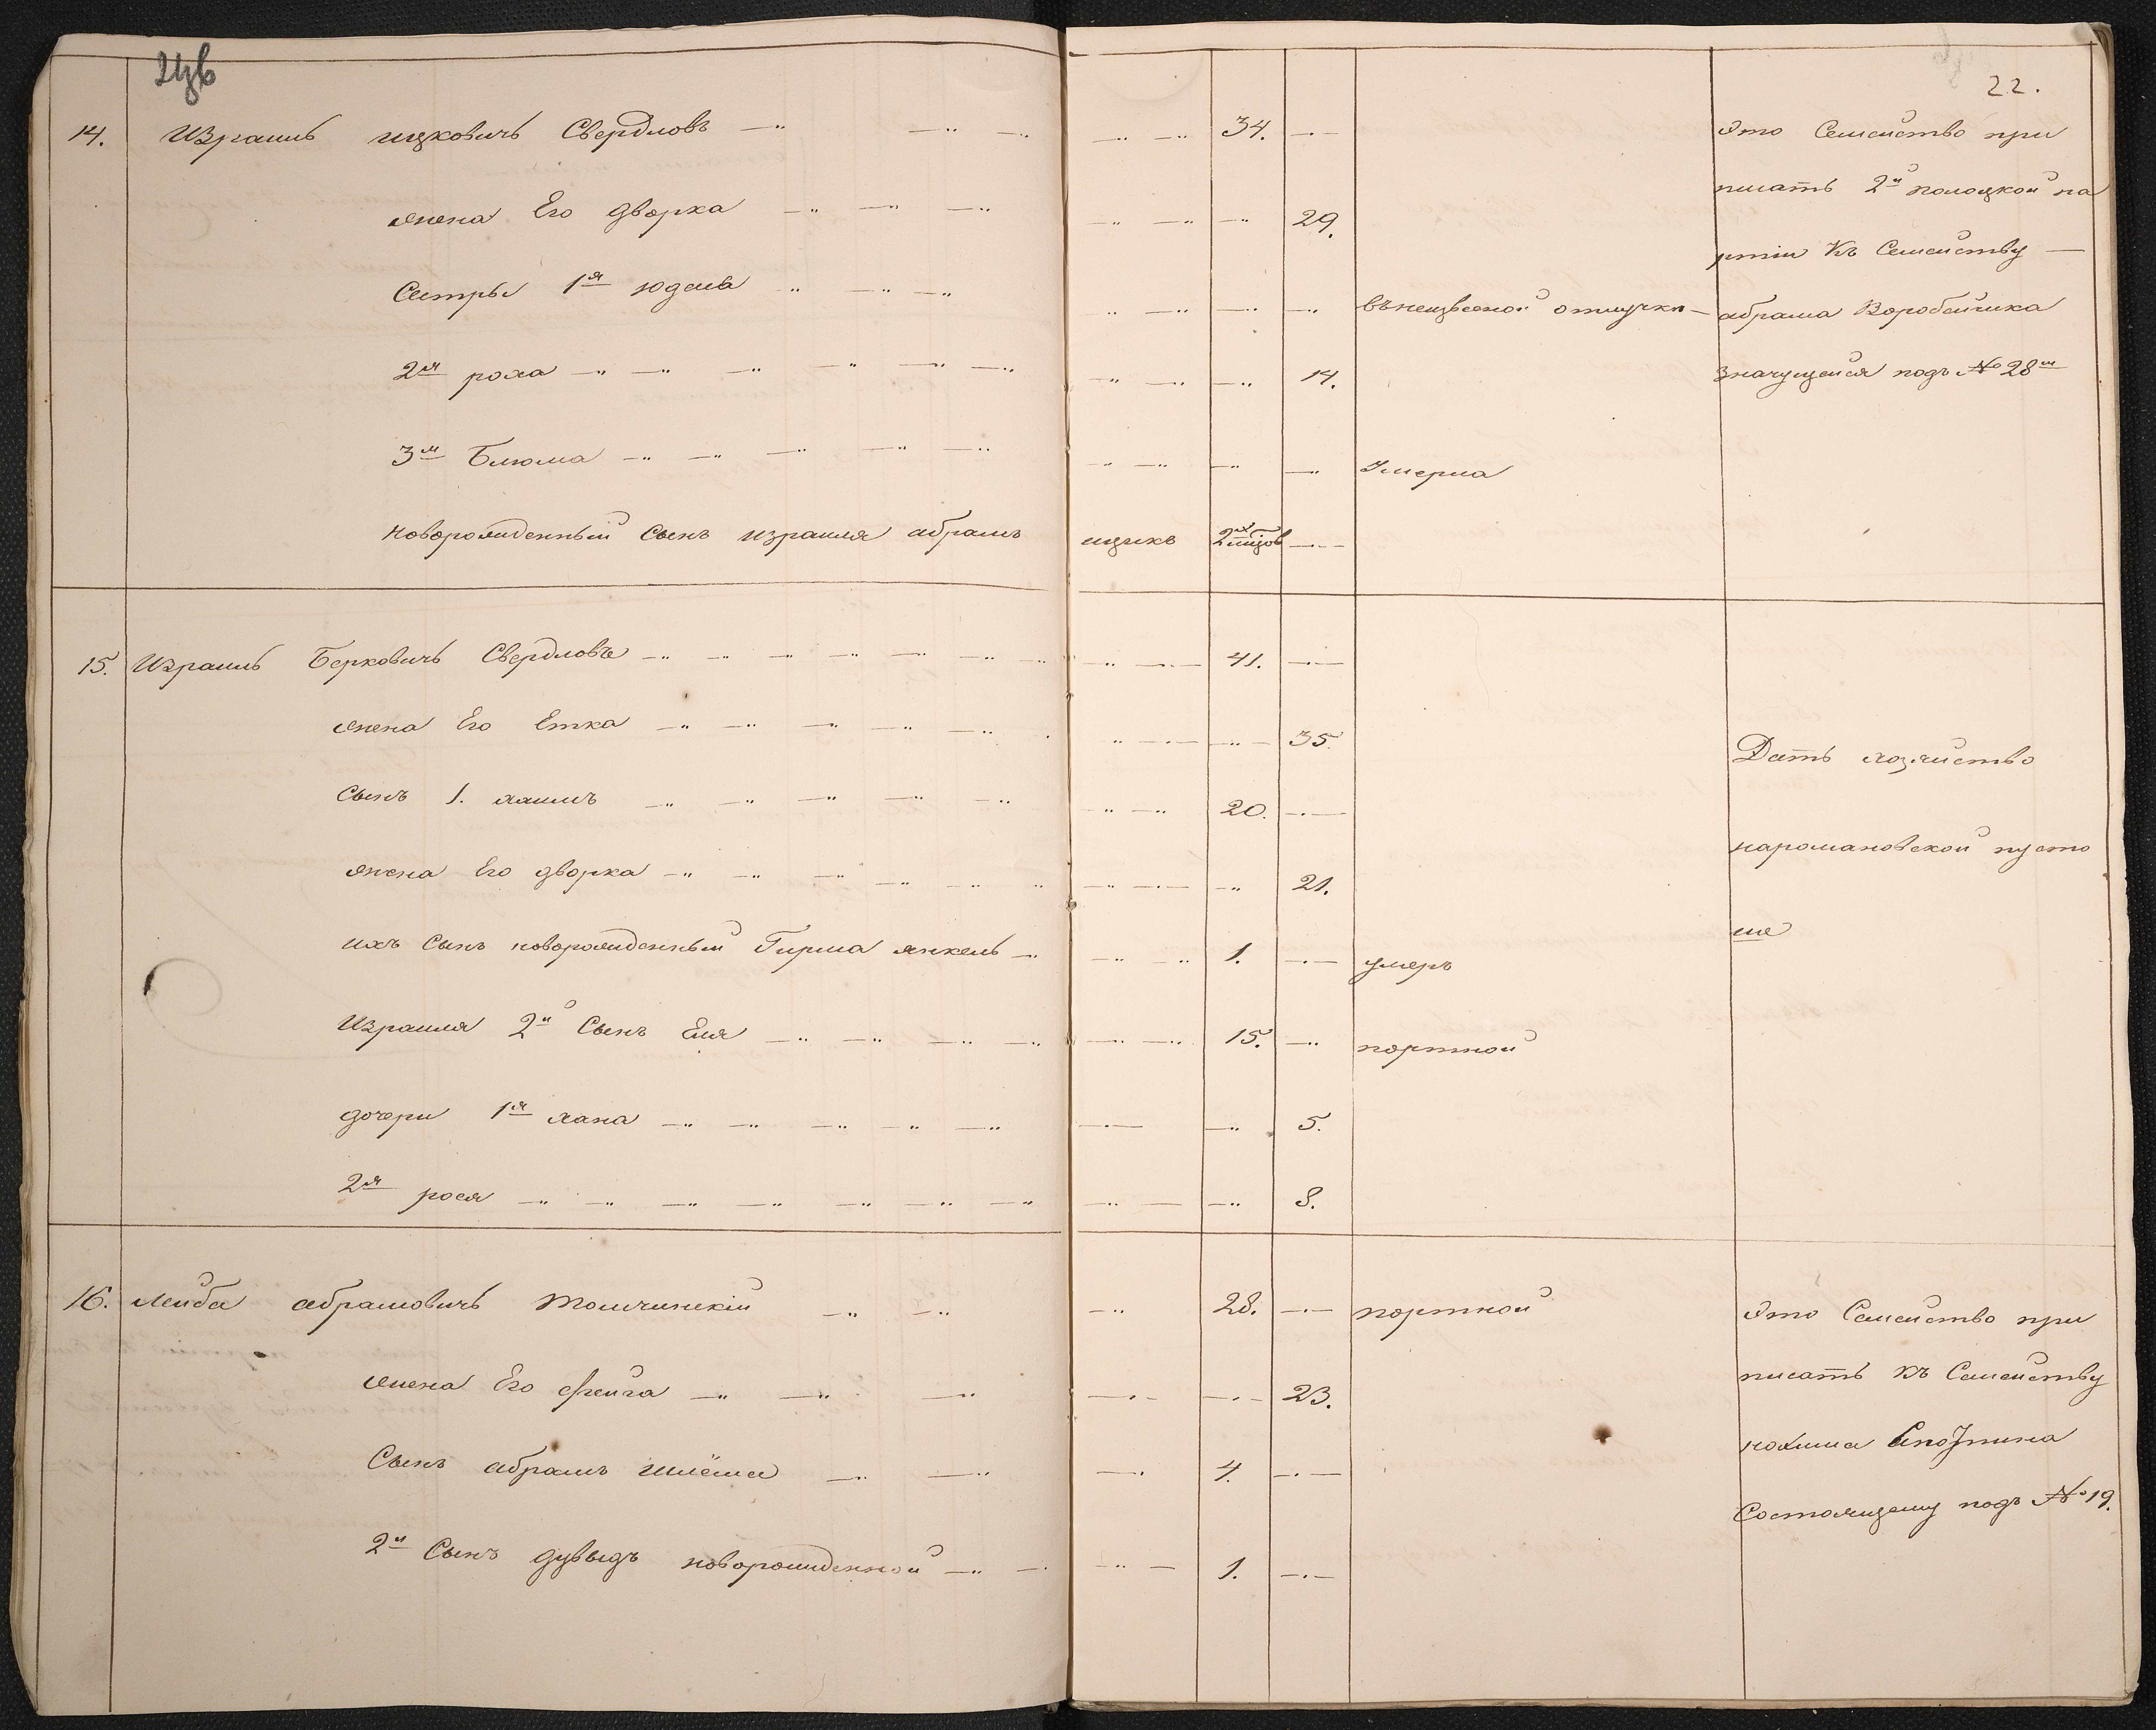 22.
14. Израиль ицковичъ Свердловъ 34.
жена Его дворка 29.
Сестры 1я юдель въ неизвесной отлучки
2я роха 14.
3я Блюма Умерла
новорожденный Сынъ израиля абрамъ ицикъ 2х мцов
Это Семейство при
писать 2й полоцкой па
ртіи Къ Семейству
абрама Воробейчика
значущейся подъ № 28м
15. Израиль Берковичъ Свердловъ 41.
жена Его Етка 35.
Сынъ 1. хаимъ 20.
жена Его дворка 21.
ихъ Сынъ новорожденный Гирша янкель 1. умеръ
Израиля 2й Сынъ Еля 15. портной
дочери 1я хана 5.
2я рося 8.
Дать хозяйство
наромановской пусто
ше
16. Лейба абрамовичъ Толчинскій 28. портной
жена Его фейга 23.
Сынъ абрамъ шлёма 4.
2й Сынъ дувыдъ новорожденной 1.
Это Семейство при
писать Къ Семейству
нохима
Состоящему подъ № 19.